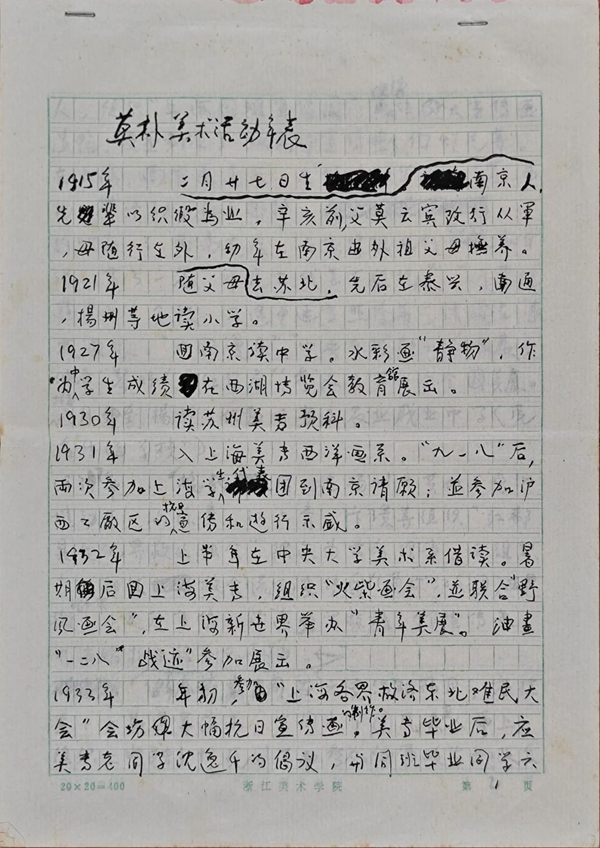 莫朴美术活动年表
1915年 二月廿七日生 南京人,
先辈以织缎为业,辛亥前父莫云宾改行从軍
,母随行在外,幼年在南京由外祖父母撫养。
1921年 随父母去苏北,先后在泰兴,南通
,揚州等地读小学。
1927年 回南京读中学。水彩画"静物",作
为中学生成绩在西湖博覧会教育館展出。
1930年 读苏州美专预科。
1931年 入上海美专西洋画系。"九一八"后,
两次参加上海学生代表团到南京请願;並参加沪
西工厰区的抗日宣传和遊行示威。
1932年 上半年在中央大学美术系借读。暑
期后回上海美专,组织"火柴画会",並联合"野
风画会",在上海新世界举办"青年美展"。油畫
"一二八"战迹"参加展出。
1933年 年初,参加"上海各界救济东北难民大
会"会场大幅抗日宣传画制作。美专毕业后,应
美专老同学沈逸千的倡议,与同班毕业同学六
20×20=400 浙江美术学院 第 1 页